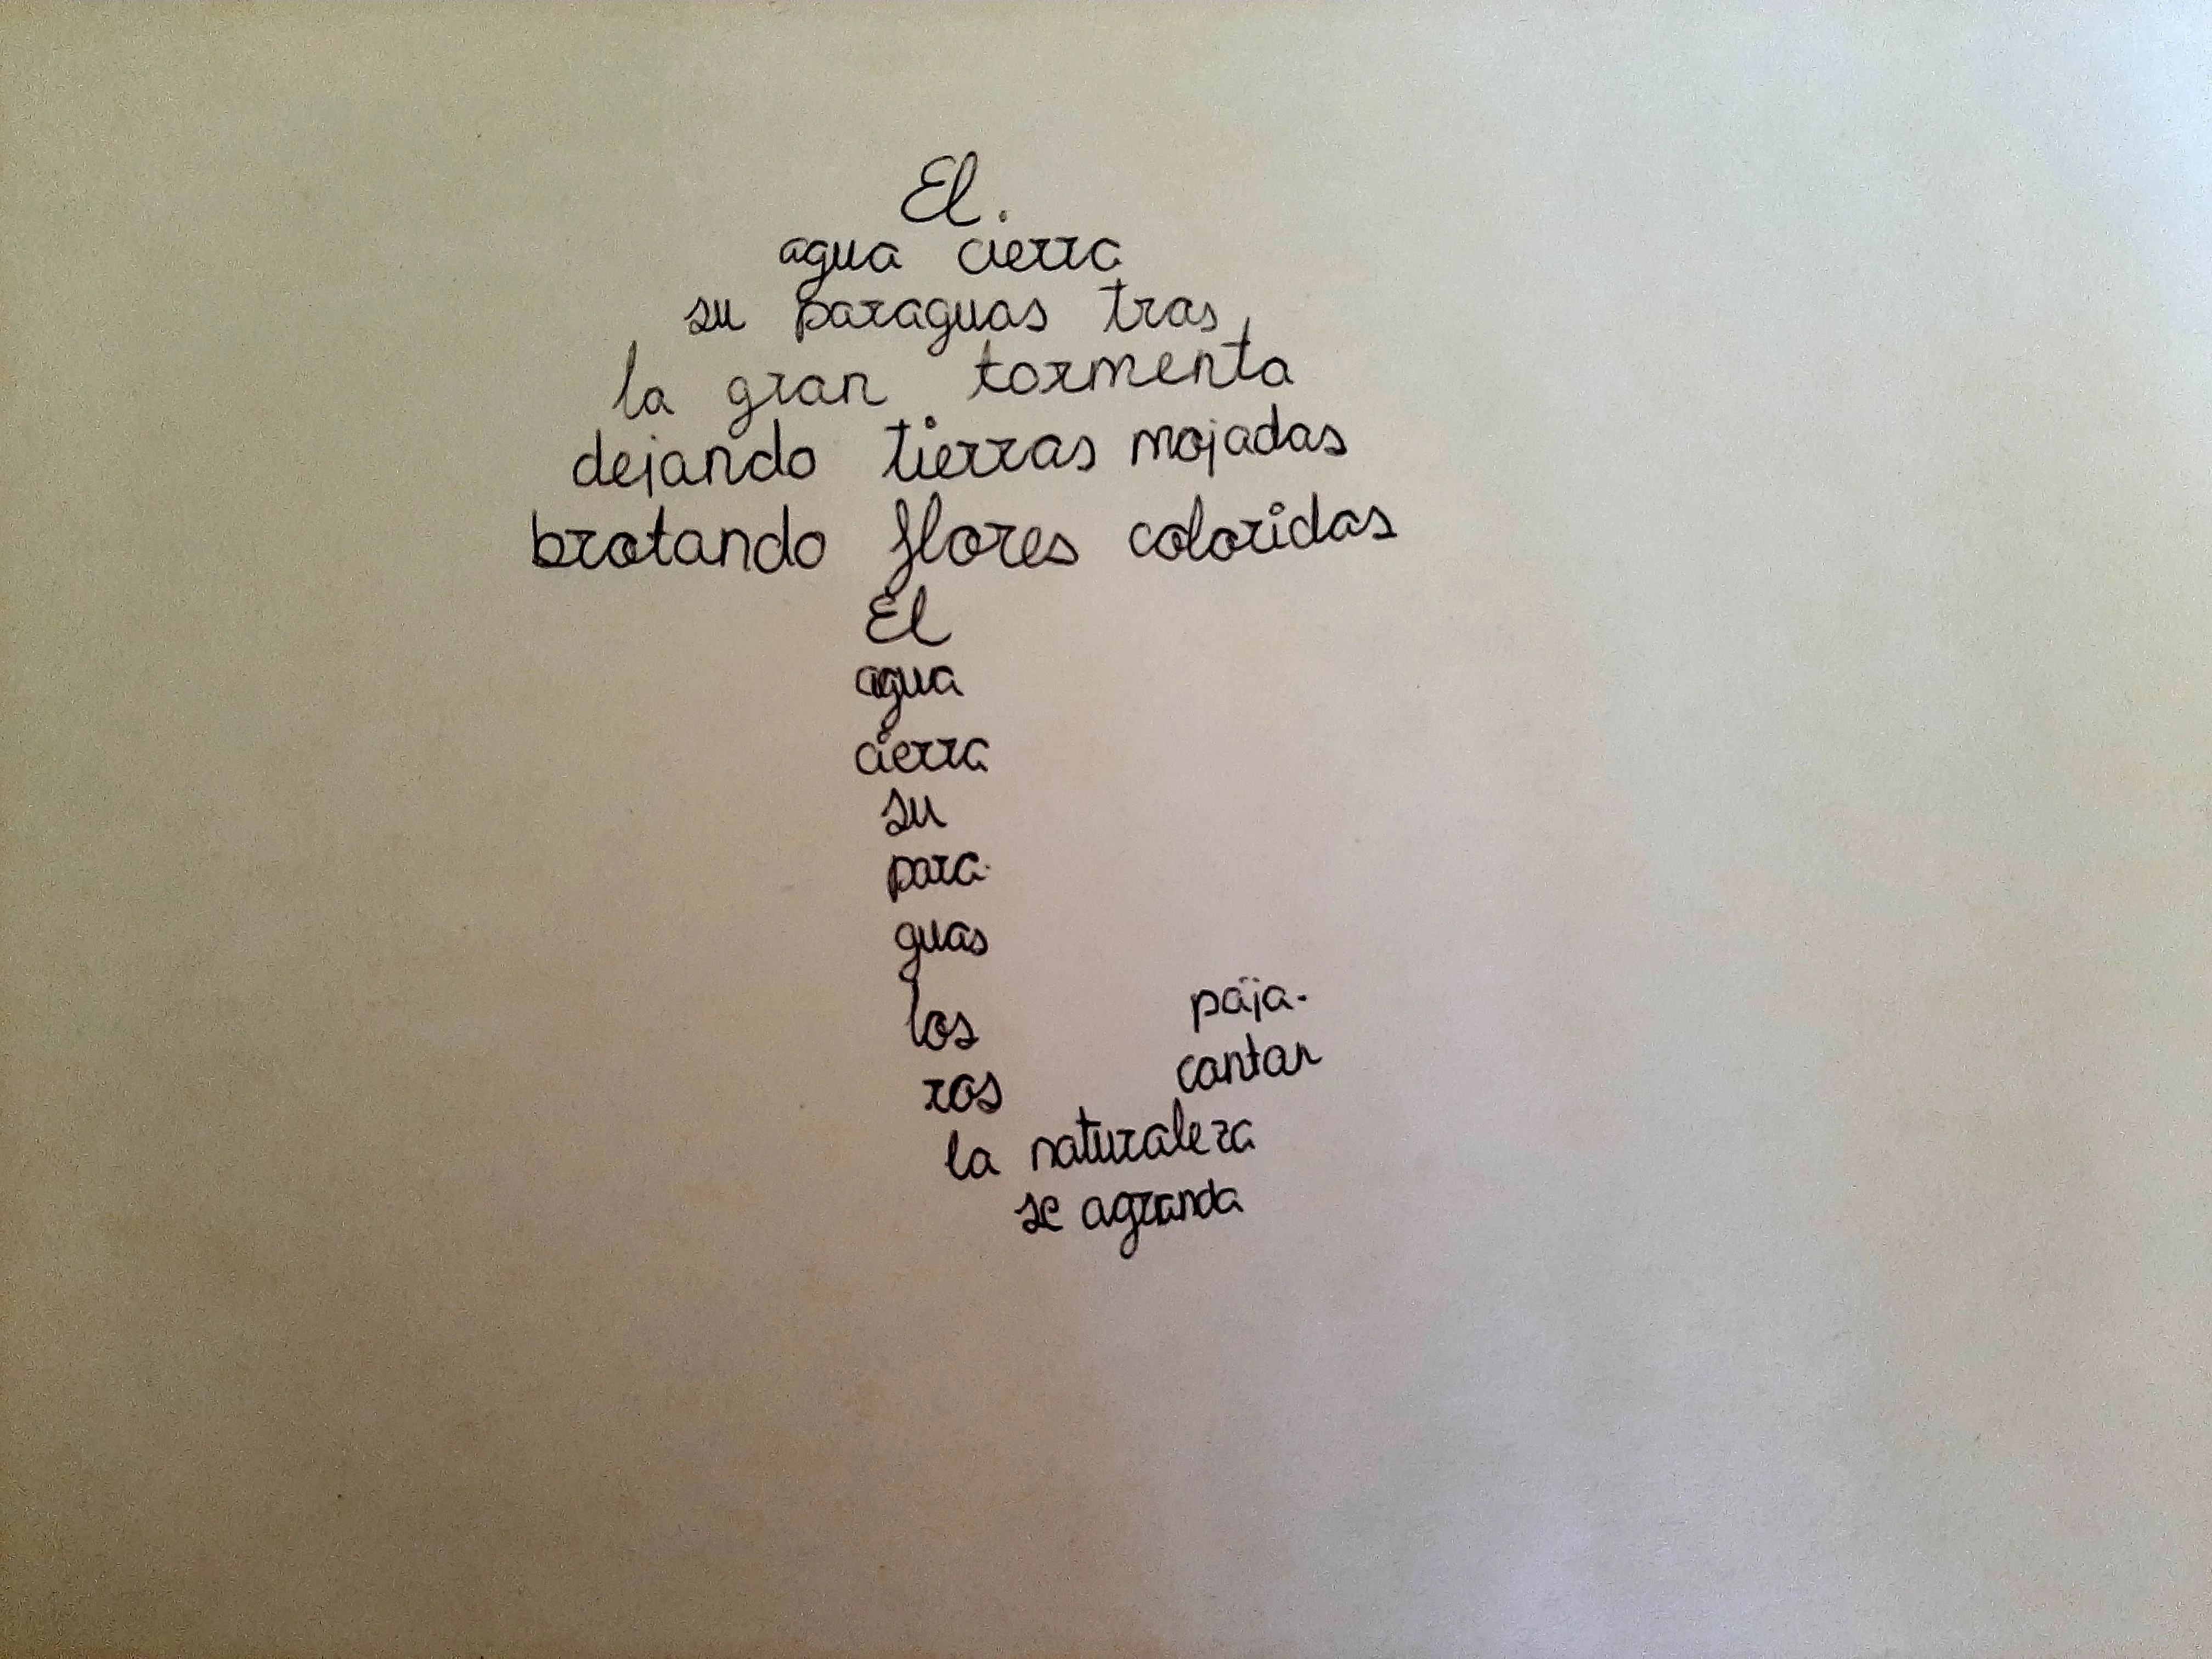 El.
agua cierra
su paraguas tras
la gran tormenta
dejando tierras mojadas
brotando flores coloridas
El
agua
cierra
su
para-
guas
los pája-
ros cantan
la naturaleza
se agranda